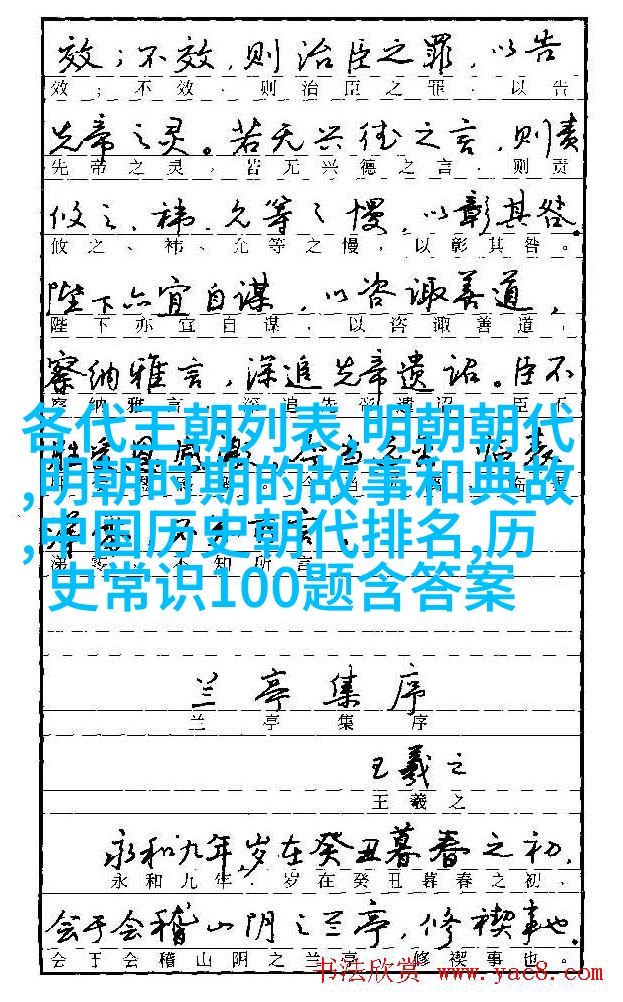 效；不效，则治臣之罪，以告
效；不效、则治臣之罪、以告
先帝之灵。若无兴德之言，则责
先帝之灵，若无兴德之言、则责
攸之、祎、允等之慢，以彰其咎。
攸之、祎、允等之慢，以彰其咎。
陛下亦宜自谋，以咨诹善道，
陛下亦宜自谋，以咨诹善道，
察纳雅言，深追先帝遗诏。臣不
各代王朝列表,明朝朝代
,明朝时期的故事和典故
,中国历史朝代排名,历
史常识100题含答案
涕零，不知所言
兰亭集序
兰亭集序
王羲之
王羲之
永和九年，岁在癸丑暮春之初，
永和九年，岁在癸丑暮春之初、
会于会稽山阴之兰亭，修禊事也。
会于会稽山阴之兰亭，修禊事也。
书法欣赏 www.yac8.com